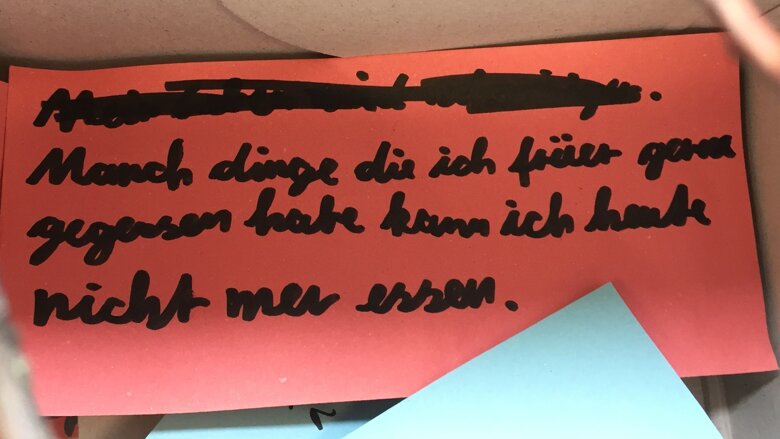 Manch dinge die ich früer gerne
gegessen habe kann ich heute
nicht mer essen.